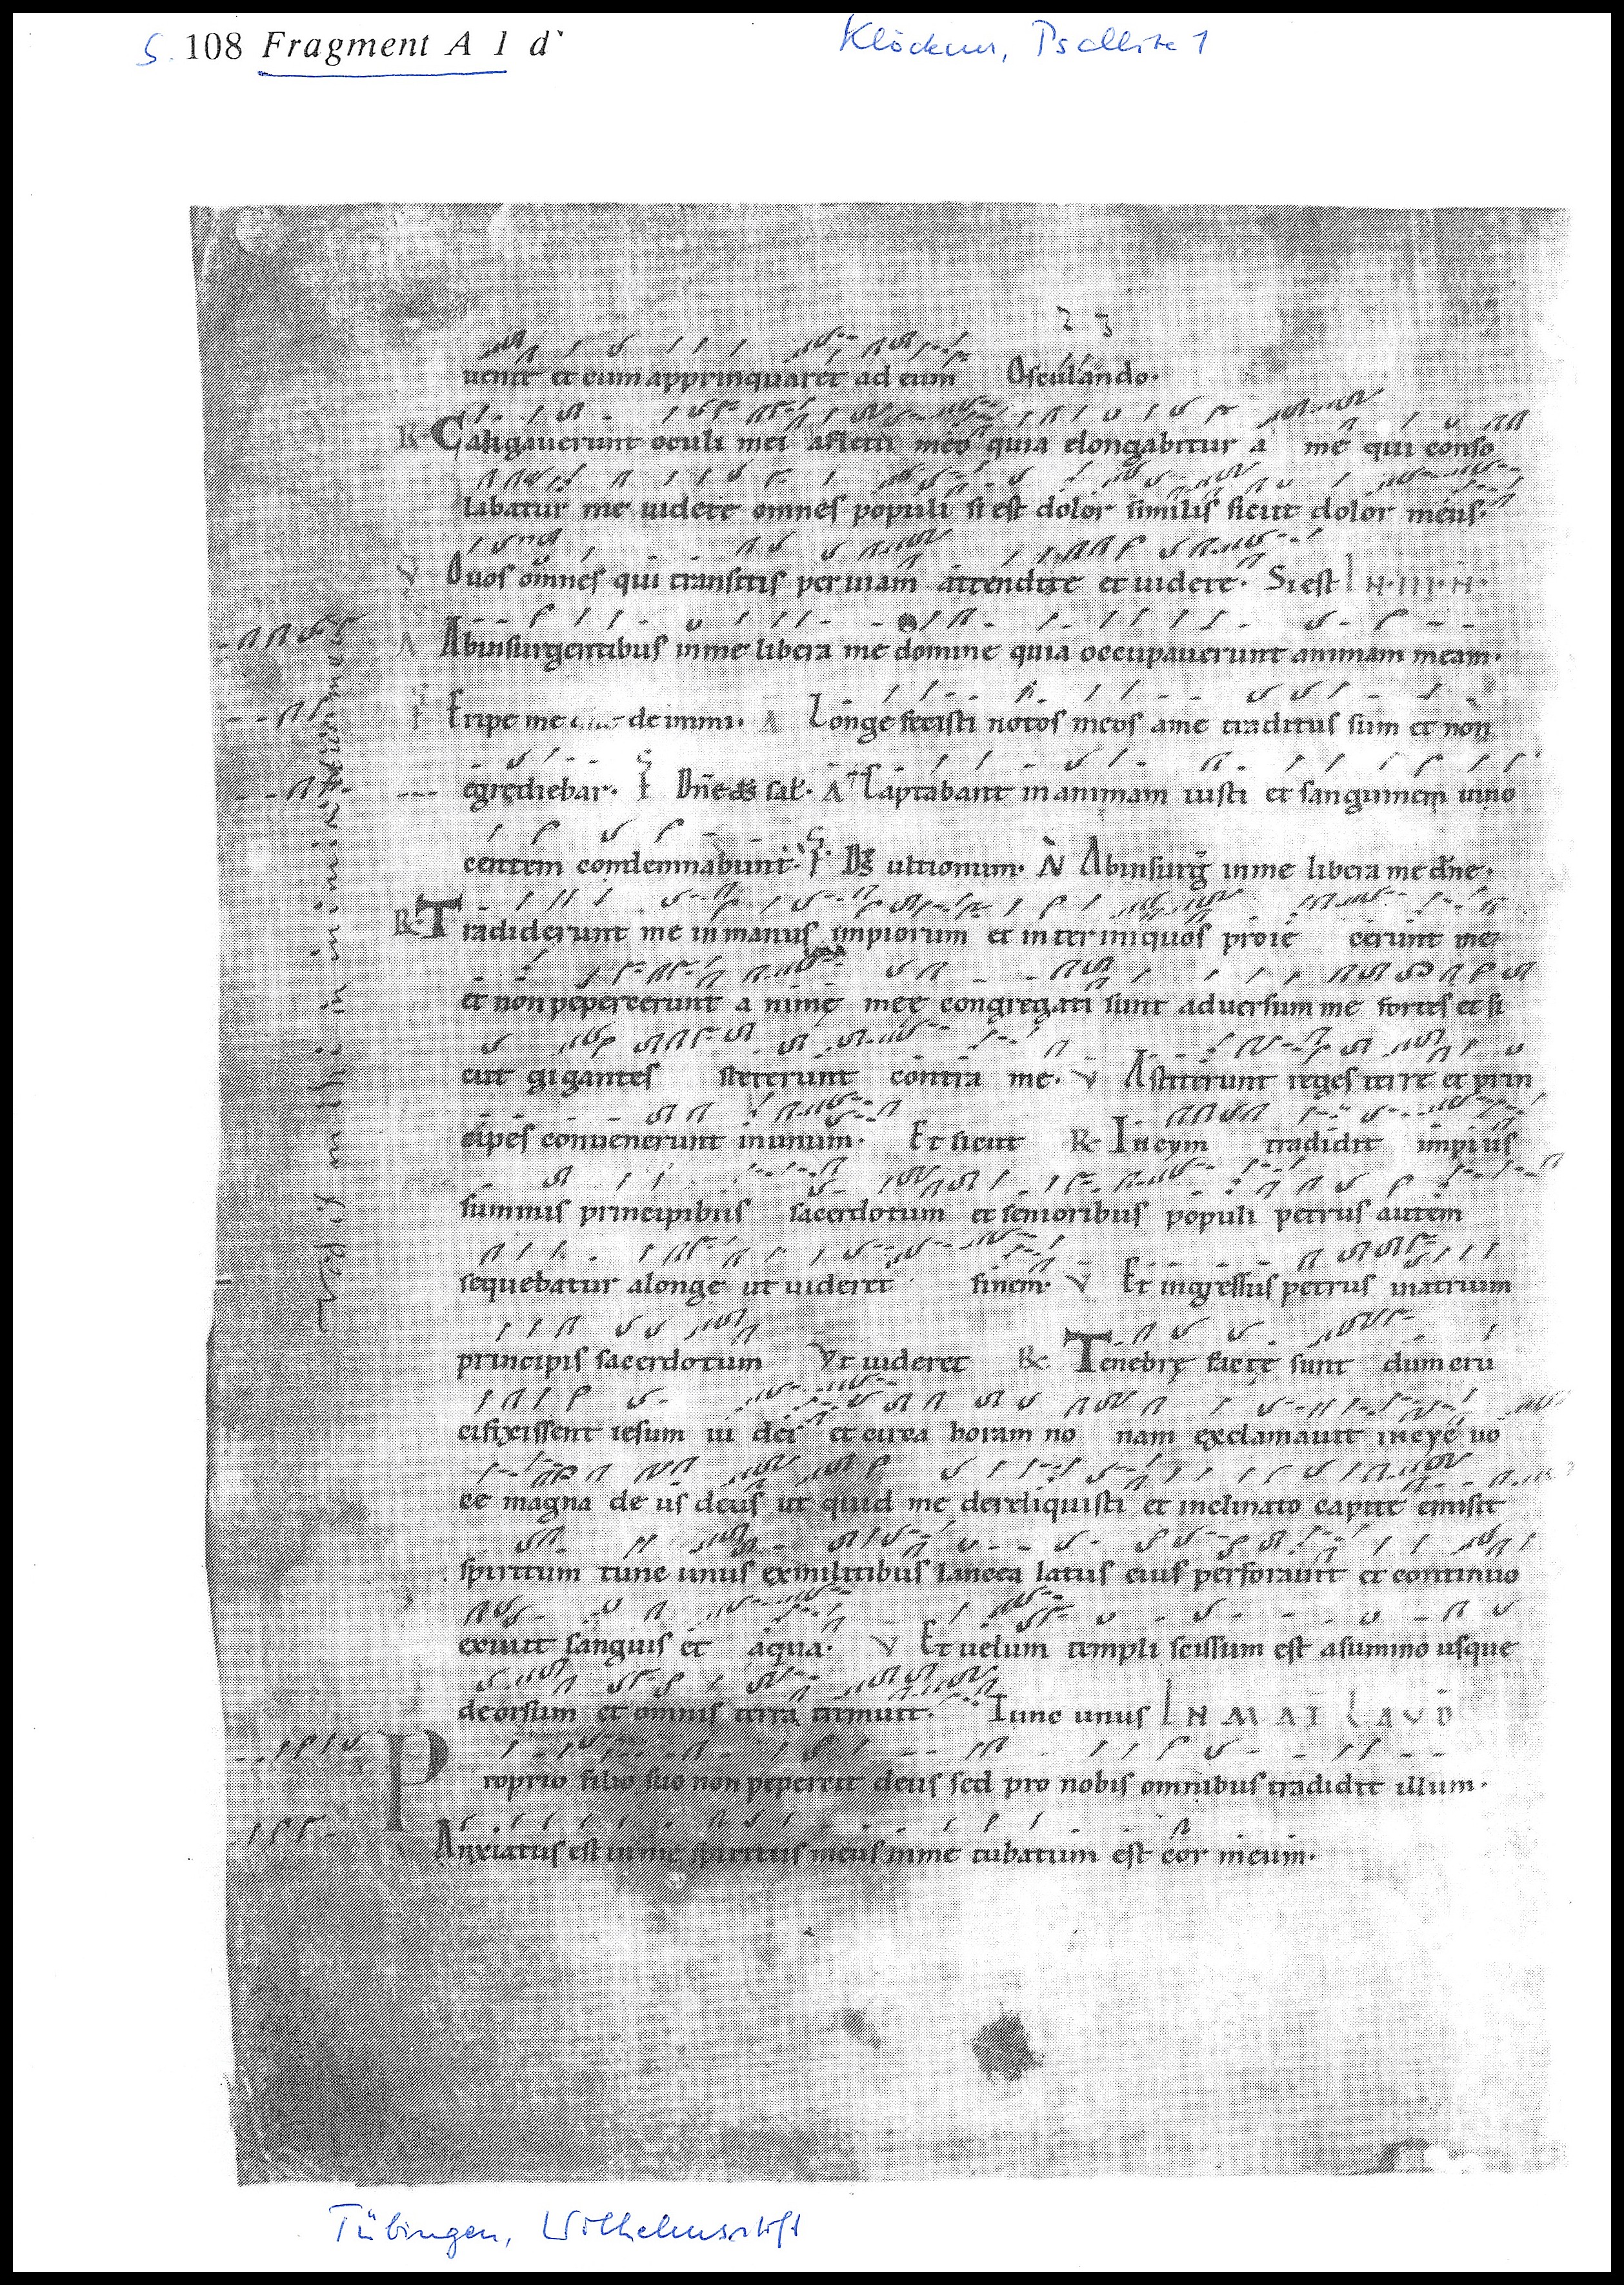 S. 108 Fragment A 1 d`
Klöckner, Psallite 1
23
uenit et cum appropinquaret ad eum Osculando.
R. Caligauerunt oculi mei afletu meo quia elongabitur a me qui conso
labatur me uidete omnes populi si est dolor similis sicut dolor meus.
V O uos omnes qui transitis per uiam attendite et uidete. Si est IN .III. N.
A Abinsurgentibus inme libera me domine quia occupauerunt animam meam.
Eripe me de inimi. A Longe fecisti notos meos ame traditus sum et non
egrediebar. Dne ds sal. A Captabant inanimam iusti et sanguinem inno
centem condemnabunt. Ds ultionum. N Abinsurg inme libera me dne.
R. Tradiderunt me inmanus impiorum et inter iniquos proie cerunt me
et non pepercerunt a nime mee congregati sunt aduersum me fortes et si
cut gigantes steterunt contra me. V Astiterunt reges terre et prin
cipes conuenerunt inunum. Et sicut R. Ineym tradidit impius
summis principibus sacerdotum et senioribus populi petrus autem
sequebatur alonge ut uideret finem. V Et ingressus petrus inatrium
principis sacerdotum Vt uideret R. Tenebrę factę sunt dum cru
cifixissent iesum iu dei et circa horam no nam exclamauit uo
ce magna de us deus ut quid me dereliquisti et inclinato capite emisit
spiritum tunc unus exmilitibus lancea latus eius perforauit et continuo
exiuit sanguis et aqua. V Et uelum templi scissum est asummo usque
deorsum et omnis terra tremuit. Tunc unus IN MAT LAVD
Proprio filio suo non pepercit deus sed pro nobis omnibus tradidit illum.
Anxiatus est inme spiritus meus inme turbatum est cor meum.
Tübingen, Wilhelmsstift